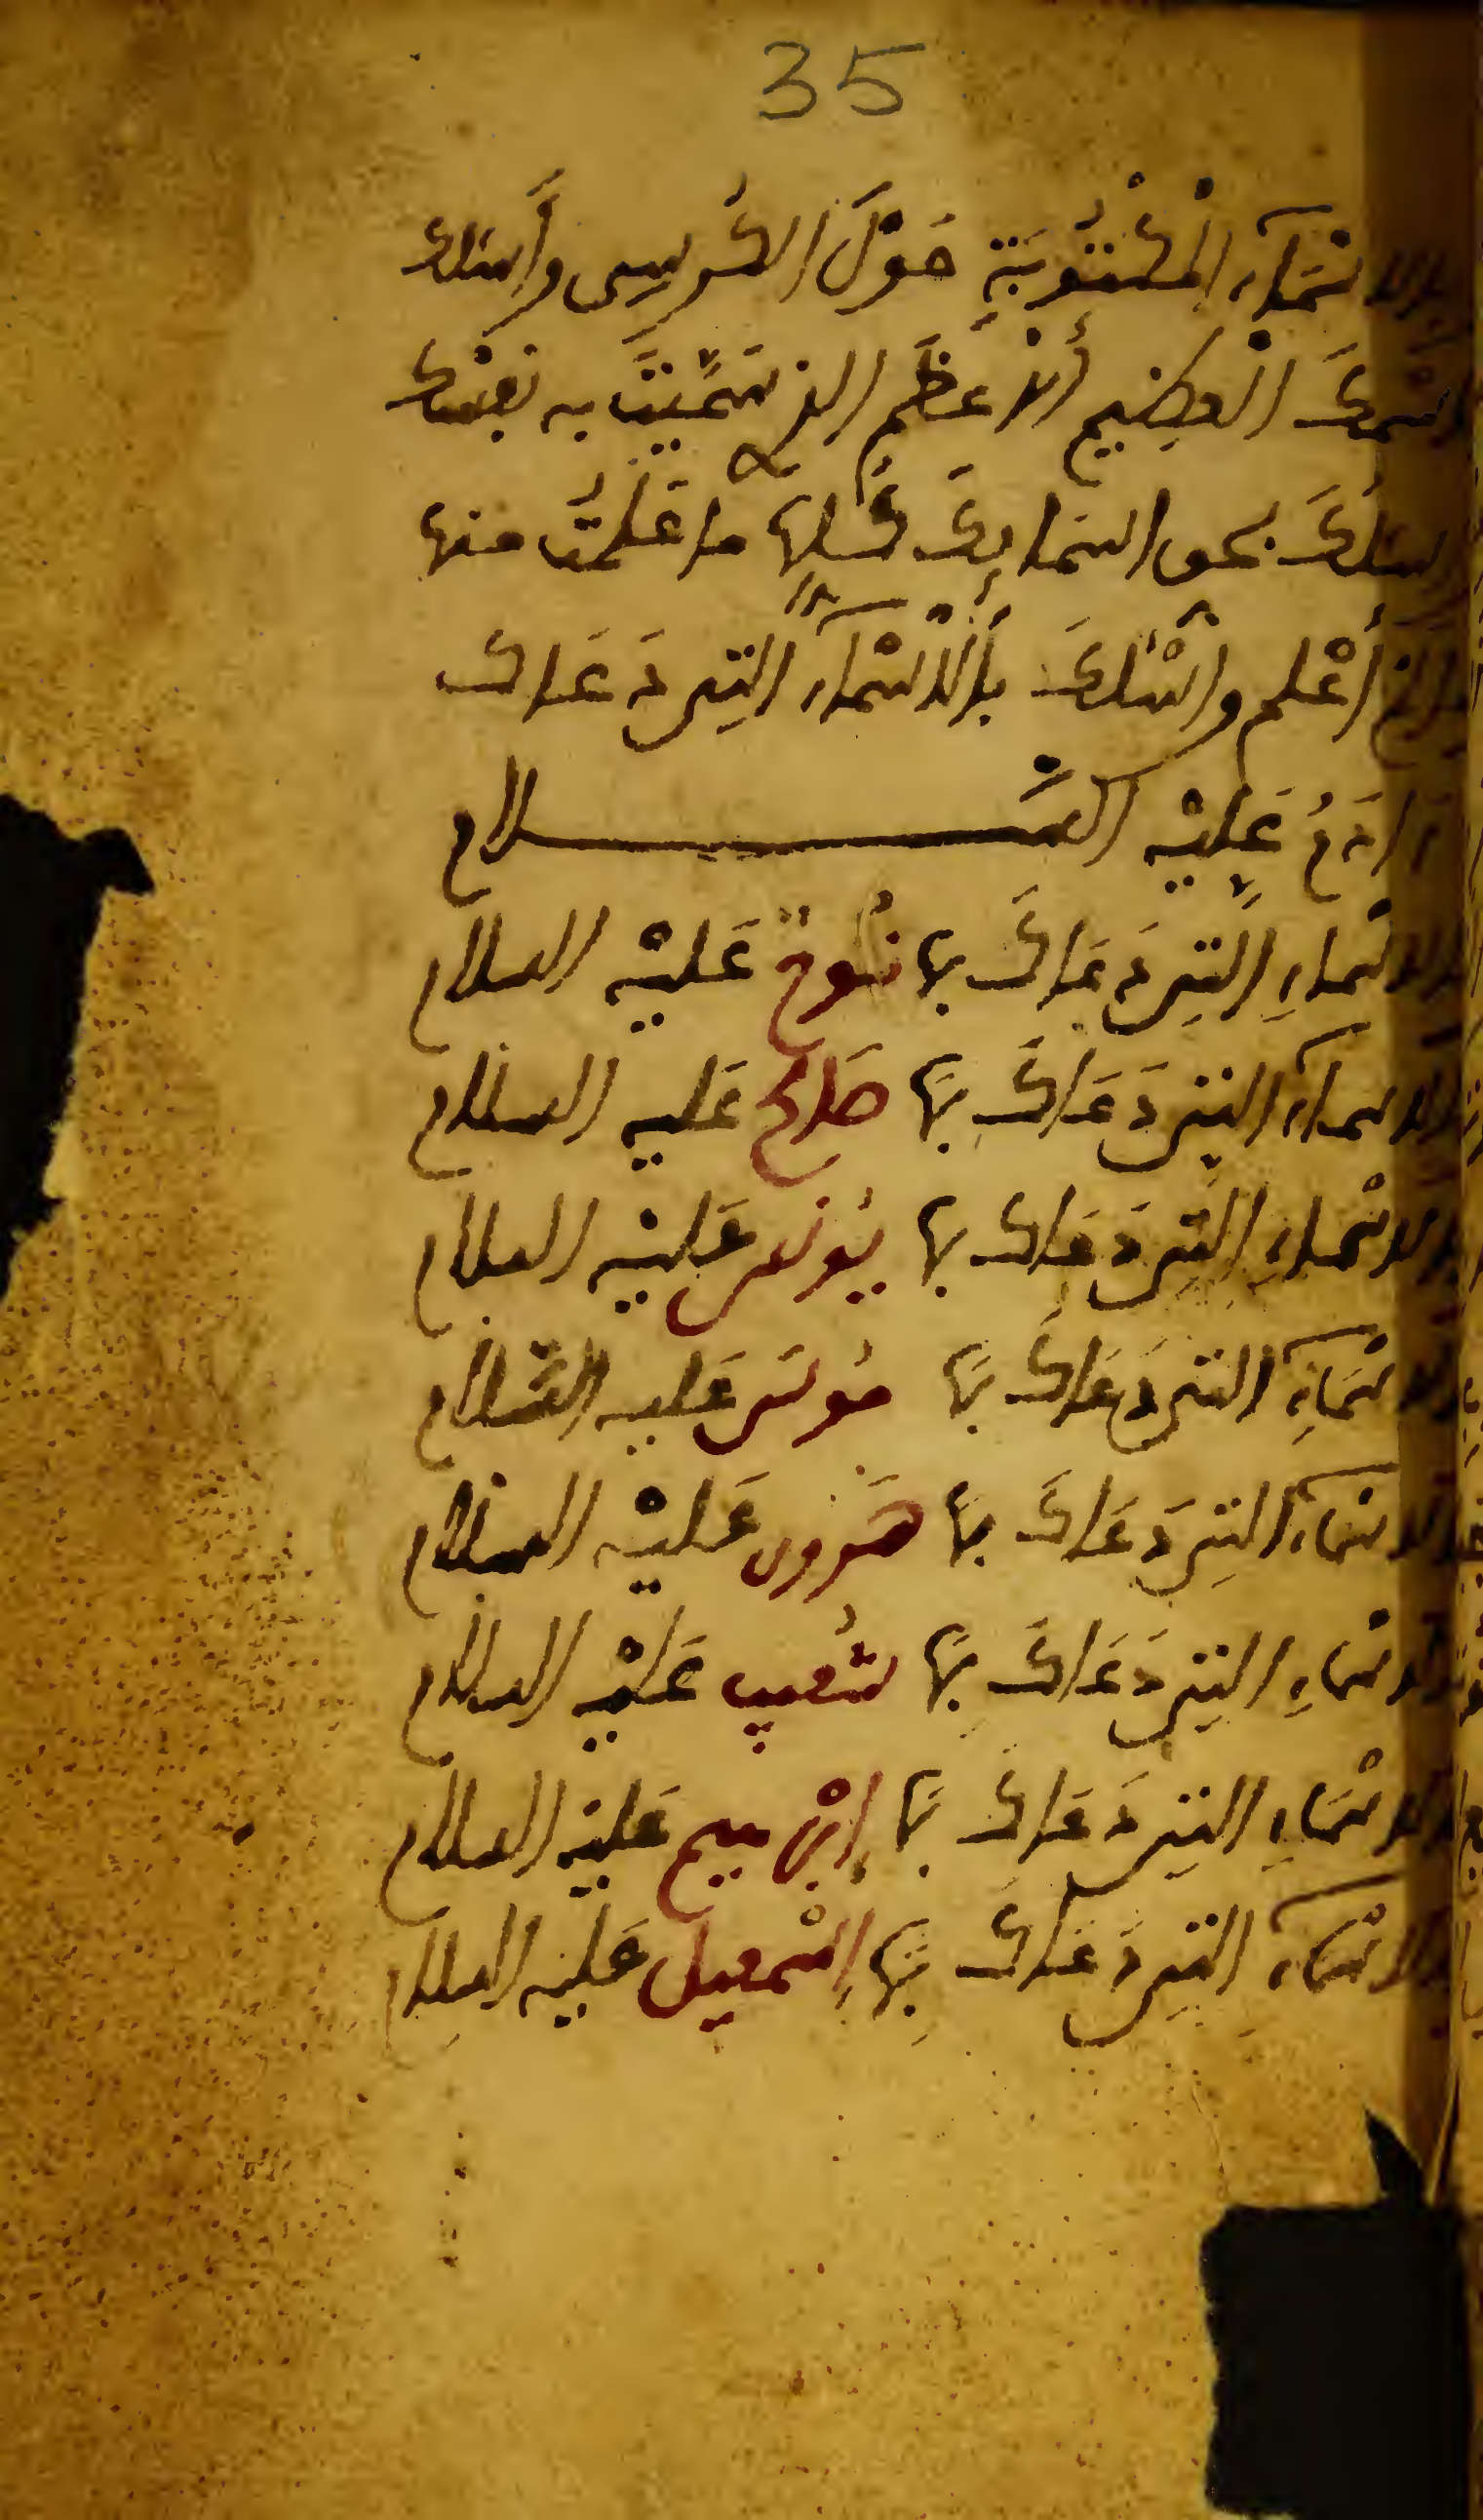 35
بالاسْمَآءِ الْمَكْتُوبَةِ حَوْلَ الكُرسِى وأَسْئلك
اسمكَ الْعظِيمِ أَلاعظَمِ الذى سَمَّيْتَ به نفسْك
سئلكَ بحق اسمايِكَ كُلِّهَا ما عَلِمْتُ منها
أَعْلم واسْئلكَ بِأَلاسْمَآءِ التِى دَعَاك
ءَادَمُ عَلَيْهِ السَّلام
الاسْماءِ التِى دَعَاكَ بها نُوحٌ عَليْهِ السلام
الاسمآءِ التِى دَعَاكَ بهَا صَالح عَليه السلام
الاسْماءِ التِى دَعَاك بها يُونس عَليْهِ السلام
الاسْمَآءِ التى دَعَاكَ بهَا مُوسَى عَليه السَّلام
الاسْمآءِ التِى دَعَاكَ بهَا هَرون عَليْهِ السلام
الاسْماءِ التِى دَعَاكَ بهَا شُعيب عَليْهِ السلام
الاسْمَاءِ التِى دَعَاكَ بهَا إِبْرهيم عَليْهِ السلام
الاسْمآءِ التِى دَعَاكَ بِهَا إِسْمعيل عَليْهِ السلام